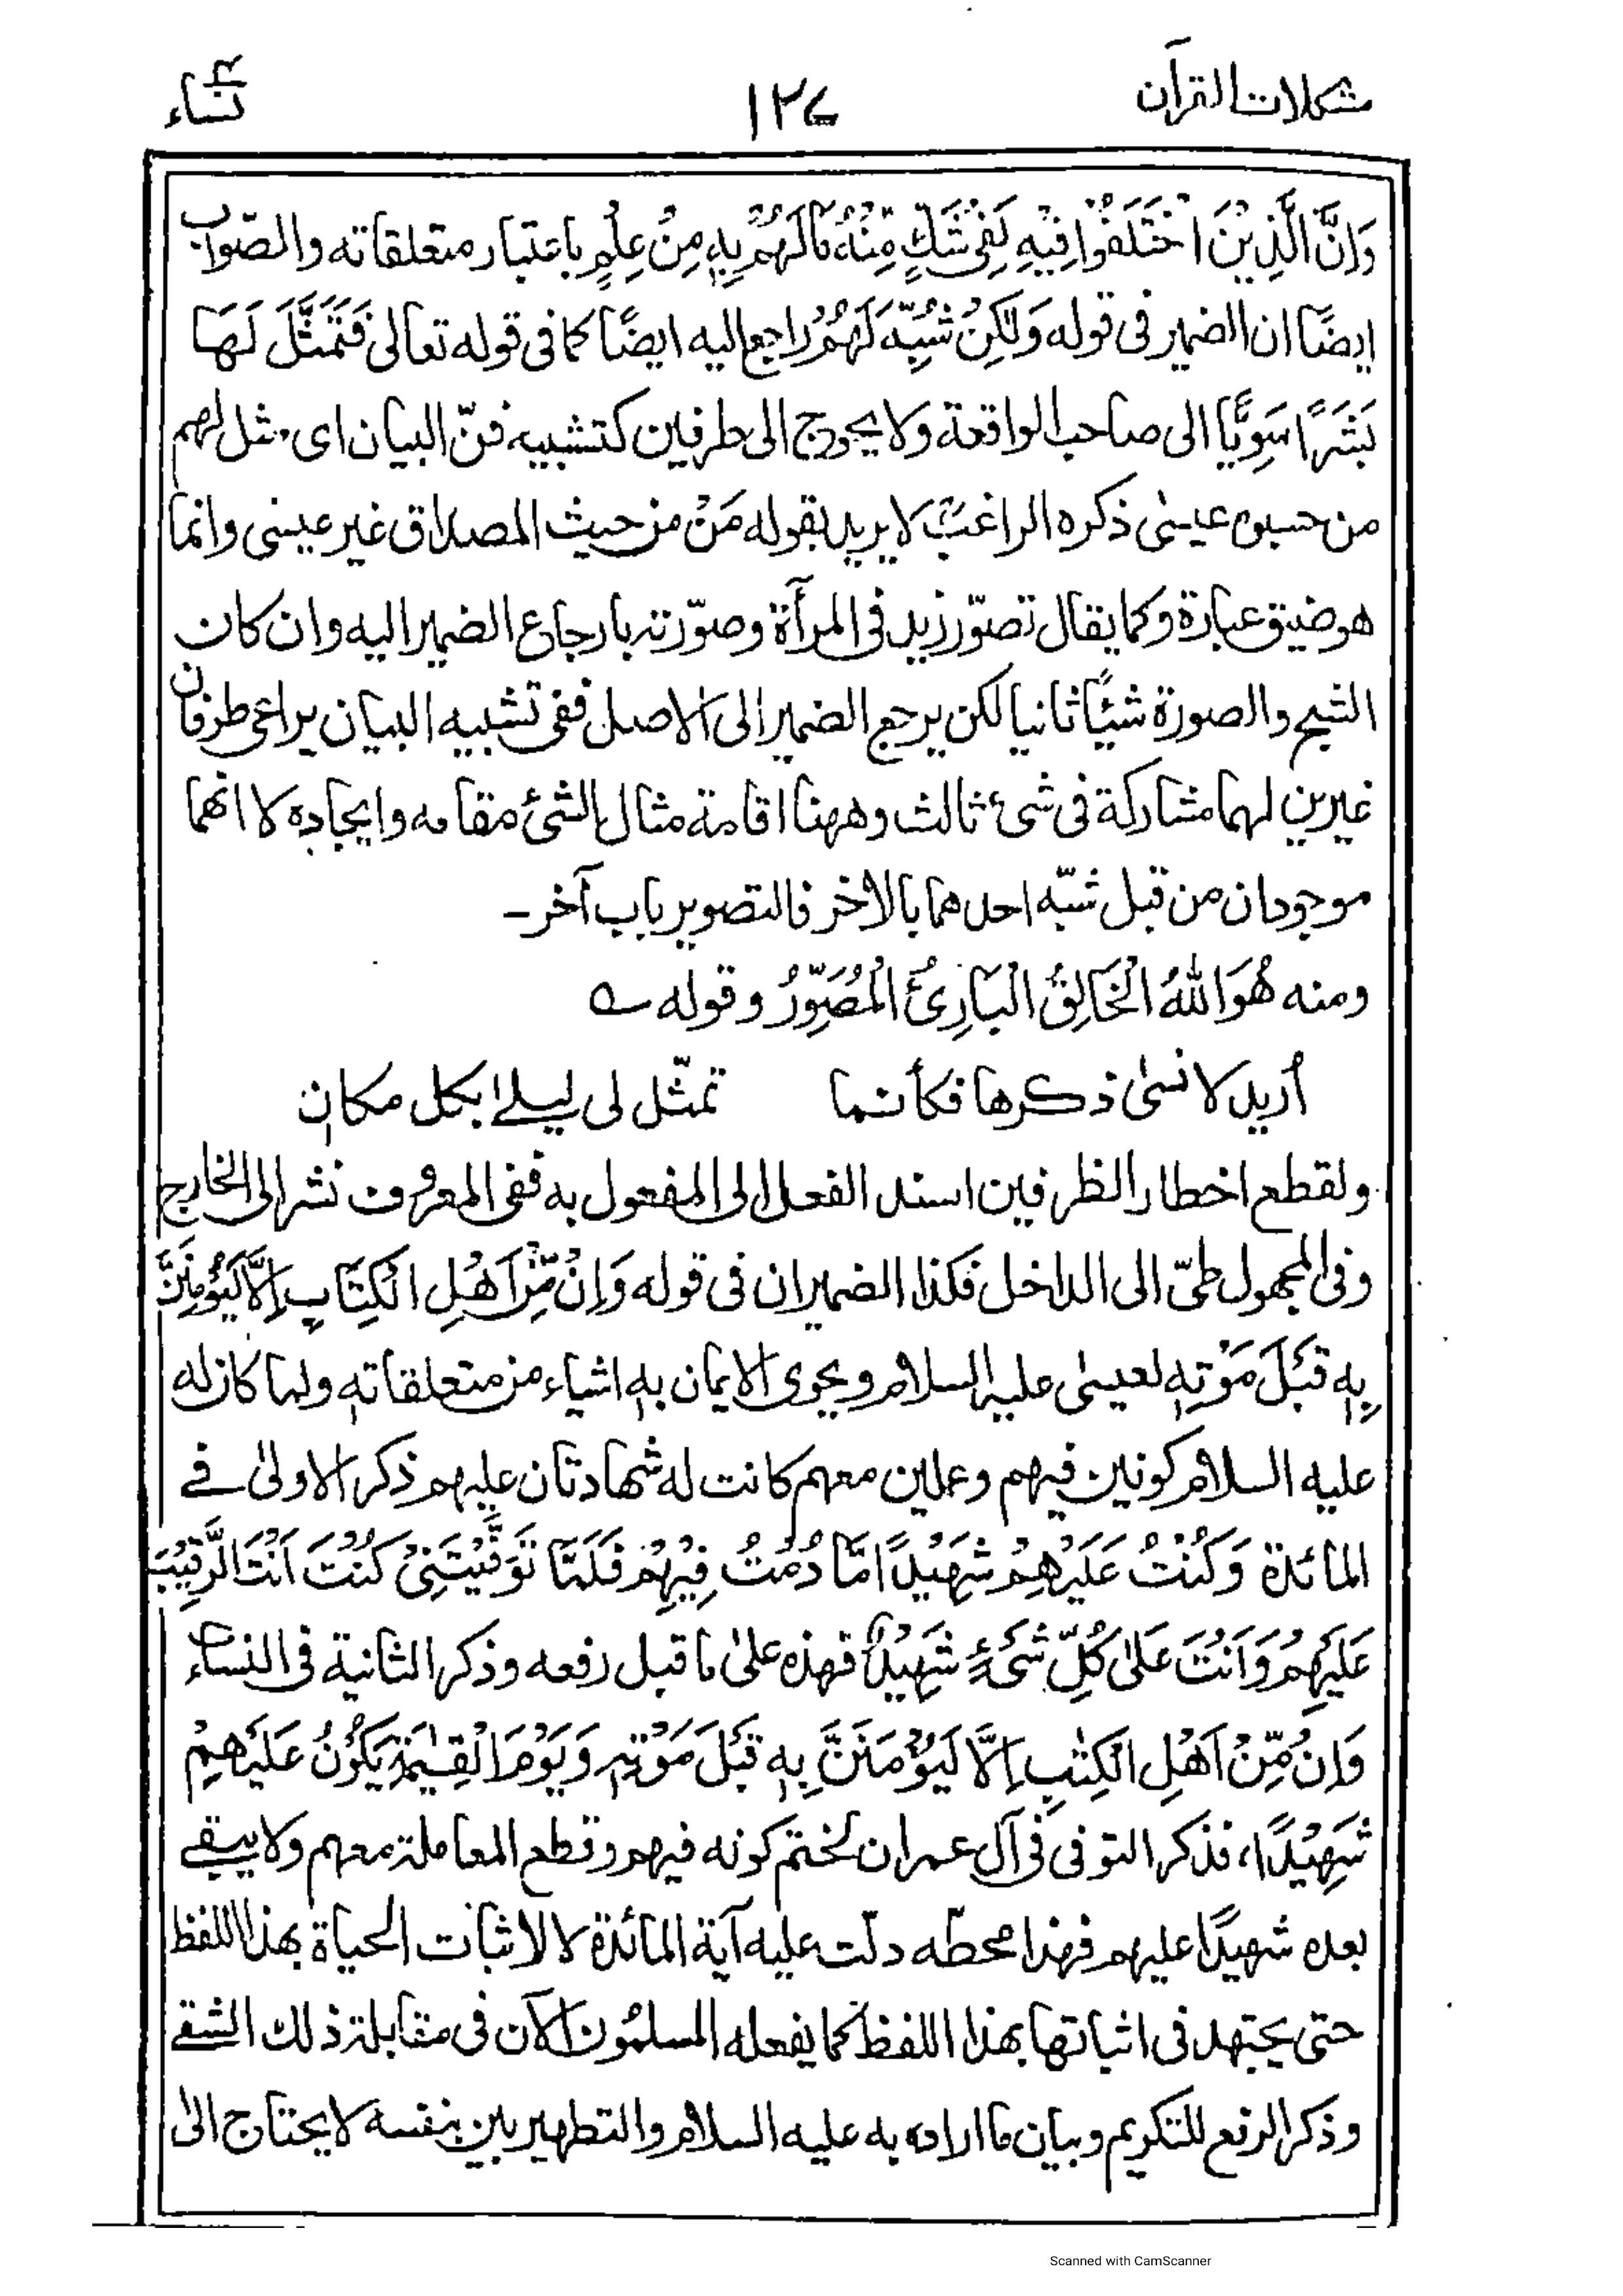 مشكلات القرآن
١٢٧
نساء
وَاِنَّ الَّذِيْنَ اخْتَلَفُوْا فِيْهِ لَفِيْ شَكٍّ مِّنْهُ مَا لَهُمْ بِهٖ مِنْ عِلْمٍ باعتبار متعلقاته والصّواب
ايضًا ان الضمير فى قوله وَلٰكِنْ شُبِّهَ لَهُمْ راجع اليه ايضًا كما فى قوله تعالى فَتَمَثَّلَ لَهَا
بَشَرًا سَوِيًّا الى صاحب الواقعة ولا يحوج الى طرفين كتشبيه فنّ البيان اى مثل لهم
من حسبوه عيسٰى ذكره الراغبؒ لا يريد بقوله مَنْ من حيث المصداق غير عيسى وانما
هو ضيق عبارة وكما يقال تصوّر زيد فى المرآة وصوّرته بارجاع الضمير اليه وان كان
الشبح والصورة شيئًا ثانيا لكن يرجع الضمير الى الاصل ففى تشبيه البيان يراعى طرفان
غيرين لهما مشاركة فى شىء ثالث وههنا اقامة مثال الشئ مقامه وايجاده لا انهما
موجودان من قبل شبّه احدهما بالآخر فالتصوير باب آخر ـ
ومنه هُوَ اللهُ الْخَالِقُ الْبَارِئُ الْمُصَوِّرُ وقوله ؎
أريد لانسٰى ذكرها فكأنما تمثّل لى ليلىٰ بكل مكان
ولقطع اخطار الظرفين اسند الفعل الى المفعول به ففى المعروف نشر الى الخارج
وفى المجهول طىّ الى الداخل فكذا الضميران فى قوله وَاِنْ مِّنْ اَهْلِ الْكِتَابِ اِلَّا لَيُؤْمِنَنَّ
بِهٖ قَبْلَ مَوْتِهٖ لعيسٰى عليه السلام ويحوى الايمان بهٖ اشياء من متعلقاتهٖ ولما كان له
عليه السلام كونين فيهم وعملين معهم كانت له شهادتان عليهم ذكر الاولىٰ فے
المائدة وَكُنْتُ عَلَيْهِمْ شَهِيْدًا مَّا دُمْتُ فِيْهِمْ فَلَمَّا تَوَفَّيْتَنِيْ كُنْتَ اَنْتَ الرَّقِيْبَ
عَلَيْهِمْ وَاَنْتَ عَلٰى كُلِّ شَيْءٍ شَهِيْدٌ فهذه علىٰ ما قبل رفعه وذكر الثانية فى النساء
وَاِنْ مِّنْ اَهْلِ الْكِتٰبِ اِلَّا لَيُؤْمِنَنَّ بِهٖ قَبْلَ مَوْتِهٖ وَيَوْمَ الْقِيٰمَةِ يَكُوْنُ عَلَيْهِمْ
شَهِيْدًا، فذكر التوفى فى آل عمران لختم كونه فيهم وقطع المعاملة معهم ولا يبقے
بعده شهيدًا عليهم فهذا محطّه دلّت عليه آية المائدة لا لاثبات الحياة بهذا اللفظ
حتى يجتهد فى اثباتها بهذا اللفظ كما يفعله المسلمُون الآن فى مقابلة ذلك الشقے
وذكر الرفع للتكريم وبيان ما اراده به عليه السلام والتطهير بين بنفسه لا يحتاج الىٰ
Scanned with CamScanner